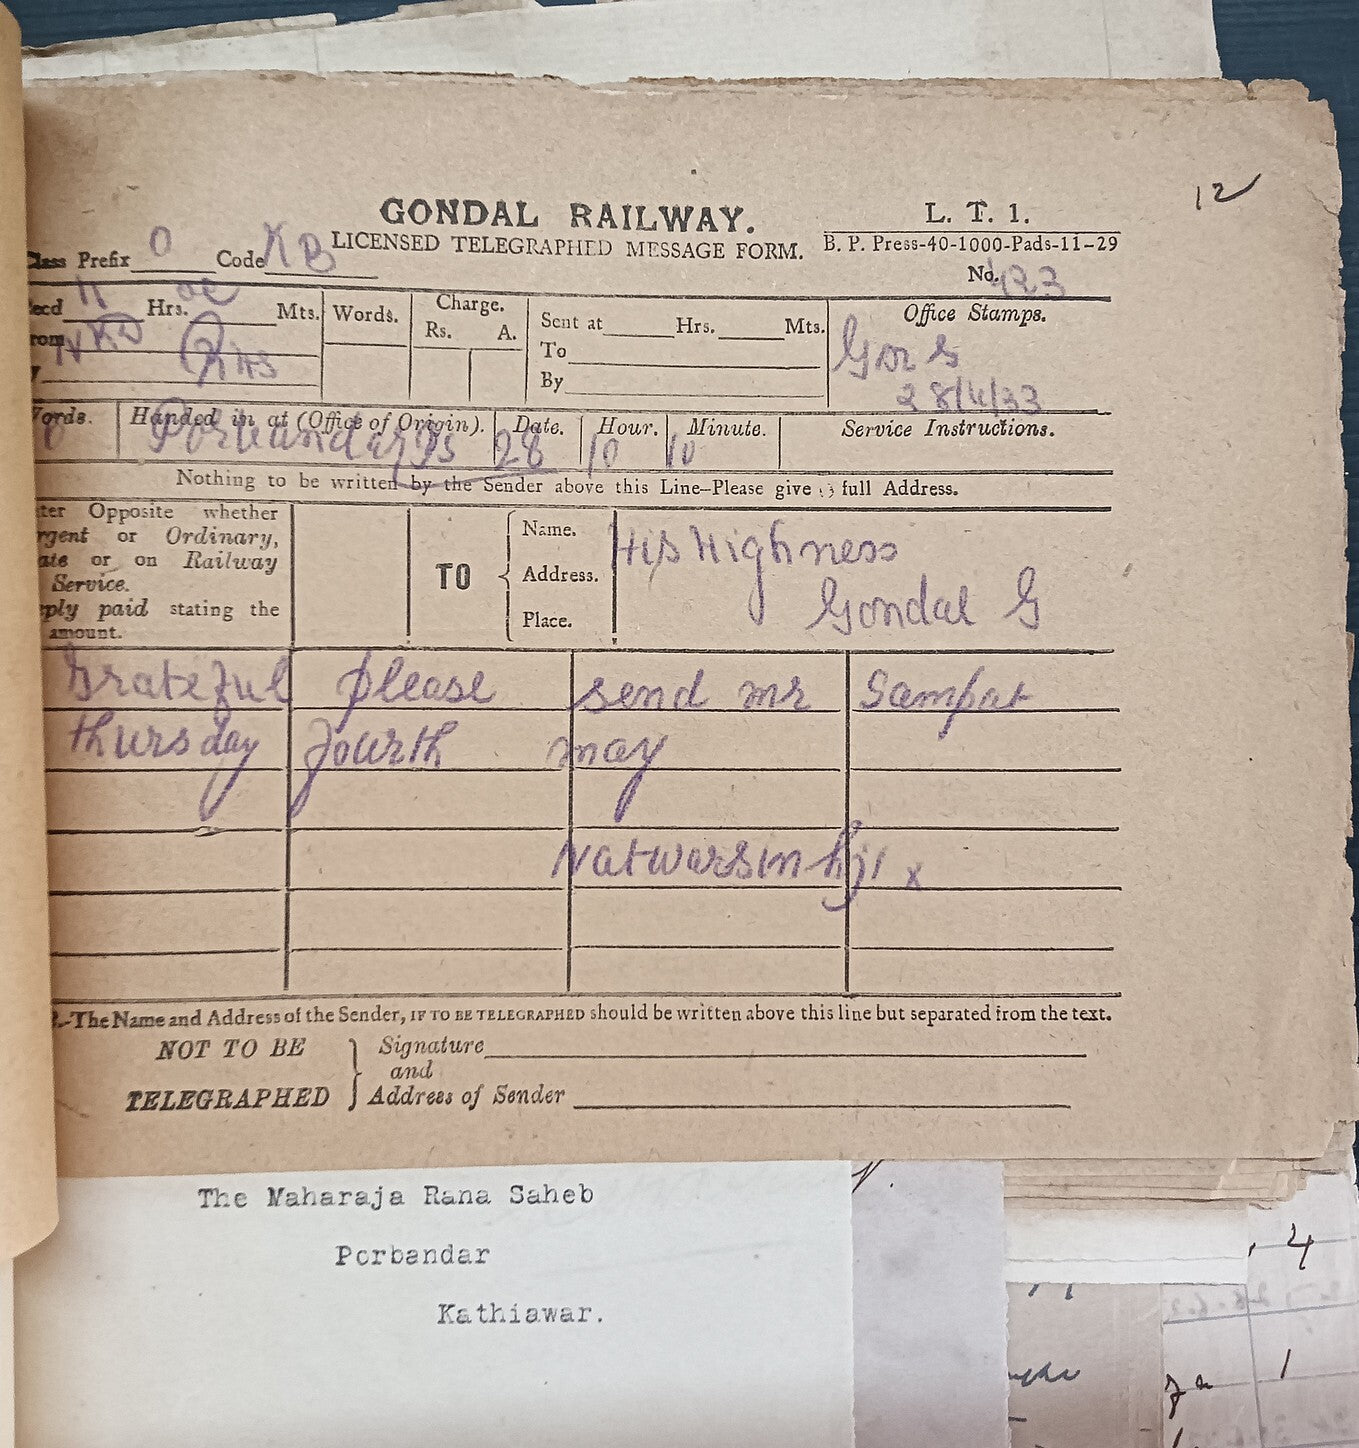 12
GONDAL RAILWAY.
L. T. 1.
LICENSED TELEGRAPHED MESSAGE FORM.
B. P. Press-40-1000-Pads-11-29
Class Prefix O Code KB
No. 423
Hrs. Mts. Words. Charge. Rs. A.
Sent at Hrs. Mts.
To
By
Office Stamps.
28/4/33
Words. Handed in at (Office of Origin). Date. Hour. Minute. Service Instructions.
Porbandar 28 10 10
Nothing to be written by the Sender above this Line-Please give full Address.
Opposite whether
or Ordinary,
or on Railway
Service.
paid stating the
amount.
TO
Name.
Address.
Place.
His Highness
Gondal G
Grateful please send mr Sampat
thursday fourth may
Natwarsinhji x
-The Name and Address of the Sender, IF TO BE TELEGRAPHED should be written above this line but separated from the text.
NOT TO BE
TELEGRAPHED
Signature
and
Address of Sender
The Maharaja Rana Saheb
Porbandar
Kathiawar.
4
1